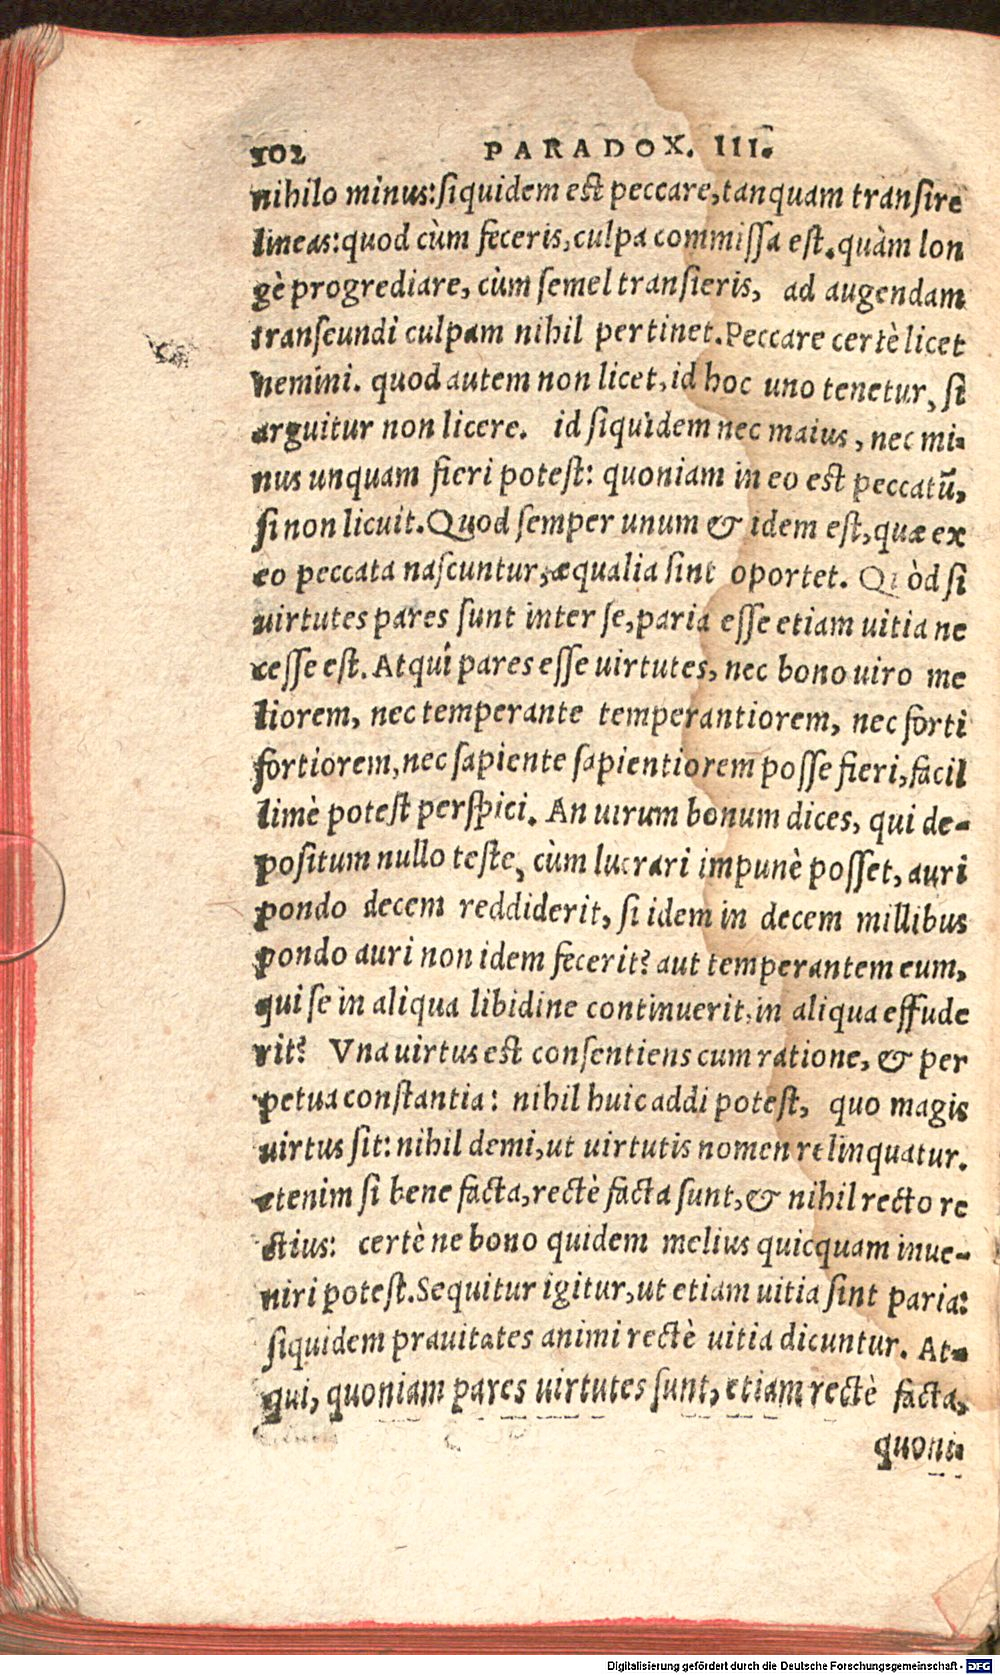 102 PARADOX. III.
nihilo minus: siquidem est peccare, tanquam transire
lineas: quod cùm feceris, culpa commissa est. quàm lon
gè progrediare, cùm semel transieris, ad augendam
transeundi culpam nihil pertinet. Peccare certè licet
nemini. quod autem non licet, id hoc uno tenetur, si
arguitur non licere. id siquidem nec maius, nec mi-
nus unquam fieri potest: quoniam in eo est peccatū,
si non licuit. Quod semper unum & idem est, quæ ex
eo peccata nascuntur, æqualia sint oportet. Quòd si
uirtutes pares sunt inter se, paria esse etiam uitia ne
cesse est. Atqui pares esse uirtutes, nec bono uiro me
liorem, nec temperante temperantiorem, nec forti
fortiorem, nec sapiente sapientiorem posse fieri, facil
limè potest perspici. An uirum bonum dices, qui de-
positum nullo teste, cùm lucrari impunè posset, auri
pondo decem reddiderit, si idem in decem millibus
pondo auri non idem fecerit? aut temperantem eum,
qui se in aliqua libidine continuerit, in aliqua effude
rit? Vna uirtus est consentiens cum ratione, & per
petua constantia: nihil huic addi potest, quo magis
uirtus sit: nihil demi, ut uirtutis nomen relinquatur.
etenim si bene facta, rectè facta sunt, & nihil recto re
ctius: certè ne bono quidem melius quicquam inue-
niri potest. Sequitur igitur, ut etiam uitia sint paria:
siquidem prauitates animi rectè uitia dicuntur. At-
qui, quoniam pares uirtutes sunt, etiam rectè facta,
quoni-
Digitalisierung gefördert durch die Deutsche Forschungsgemeinschaft - DFG